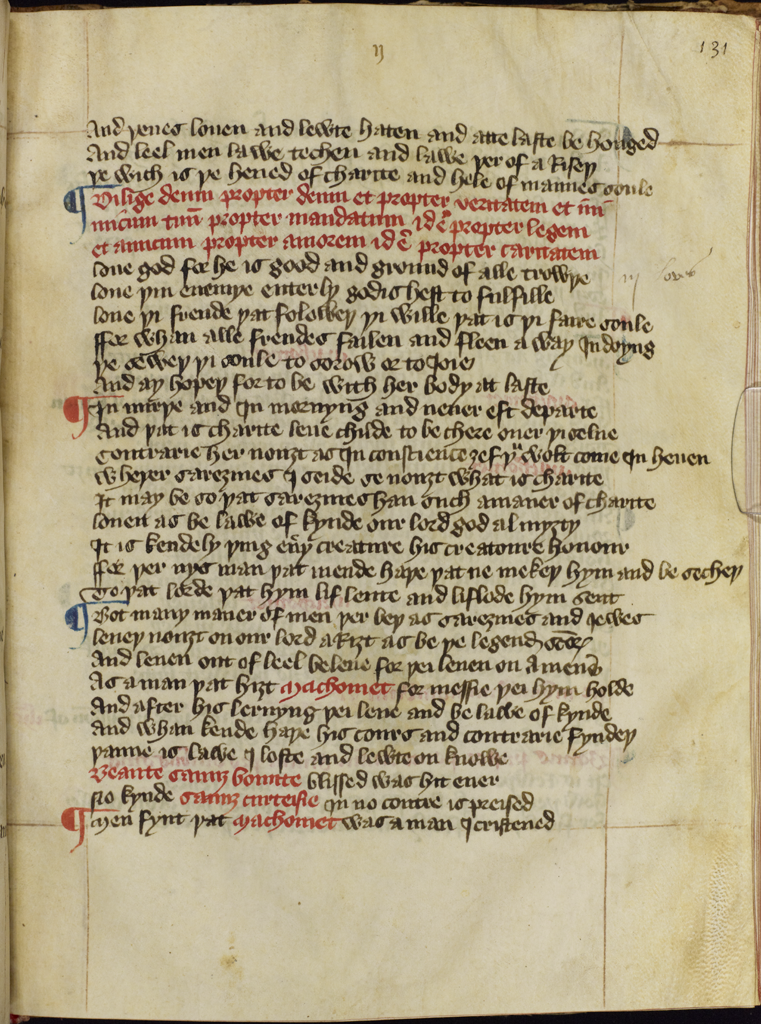 131
And þeues louen and lewte haten and atte laste be honged
And leel men lawe techen and lawe þer of a Riseþ
þe wich is þe heued of charite and hele of mannes soule
Dilige deum propter deum et propter veritatem et ini
micum tuū propter mandatum idē propter legem
et amicum propter amorem idē propter caritatem
loue god for he is good and ground of alle trowþe
loue þin enemye enterly godis hest to fulfille
loue þi frende þat foloweþ þi wille þat is þi faire soule
ffor whan alle frendes failen and fleen a way In doyng
þe seweþ þi soule to sorow or to Ioie
And ay hopeþ for to be with her body at laste
In mirþe and In mornyng and neuer eft departe
And þat is charite leue childe to be chere ouer þi selue
Contrarie her nouȝt as In conscience ȝef þu wolt come In heuen
Wheþer sareȝines I seide se nouȝt what is charite
It may be so þat sareȝines han such a maner of charite
louen as be lawe of kynde our lord god al myȝty
It is kendely þing eūy creature his creatoure honour
ffor þer nys man þat mende haþe þat ne mekeþ hym and be secheþ
To þat lorde þat hym lif lente and liflode hym sent
Bot many maner of men þer beþ as sareȝines and Iewes
leueþ nouȝt on our lord a Riȝt as be þe legend
And leuen out of leel beleue for þei leuen on a mene
As a man þat hiȝt Machomet for messie þei hym holde
And after his lernyng þei leue and be lawe of kynde
And whan kende haþe his cours and contrarie fyndeþ
þanne is lawe I loste and lewte on knowe
Beaute sannȝ bounte blissed was hit euer
No kynde sannȝ curteisie In no contre is preised
Men fynt þat Machomet was a man I cristened